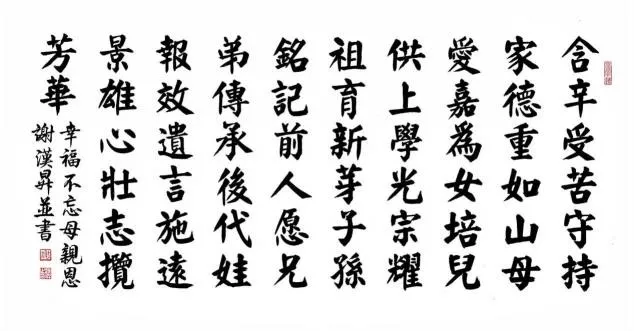 含辛受苦守持
家德重如山母
愛嘉爲女培兒
供上學光宗耀
祖育新芽子孫
銘記前人愿兄
弟傳承後代娃
報效遺言施遠
景雄心壯志攬
芳華
幸福不忘母親恩
謝漢昇並書